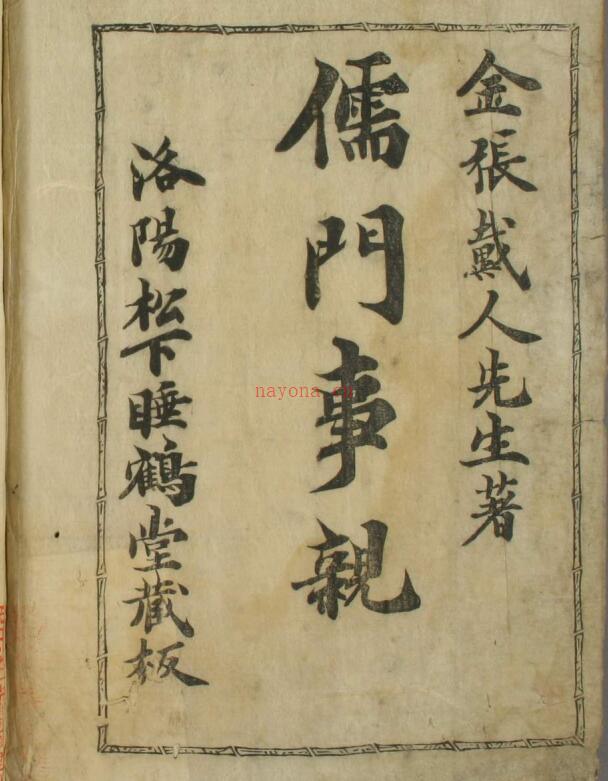 金張戴人先生著
儒門事親
洛陽松下睡鶴堂藏板
nayona.cn